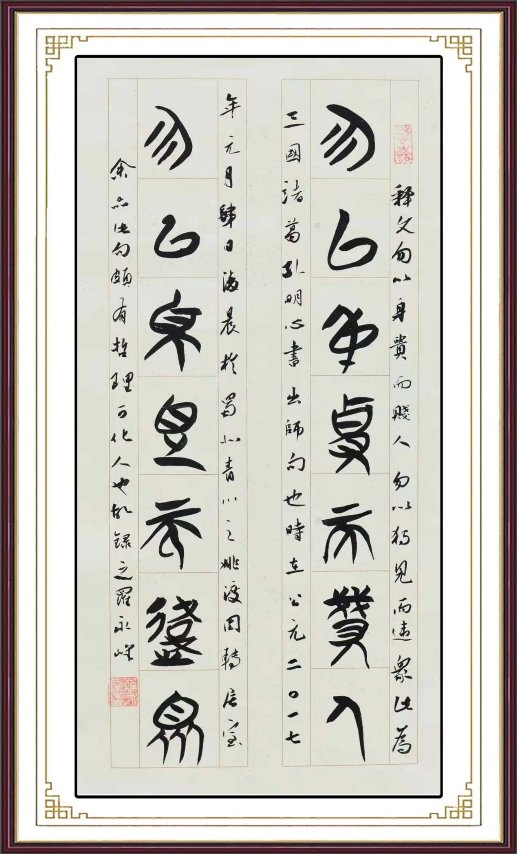 釋文勿以身貴而賤人勿以獨見而違衆此為
勿以身貴而賤人
三國諸葛孔明心書出師句也時在公元二〇一七
年元月日晨於蜀北青川之姚渡因轉居室
勿以獨見而違衆
余品此句頗有哲理可化人也故錄之羅永